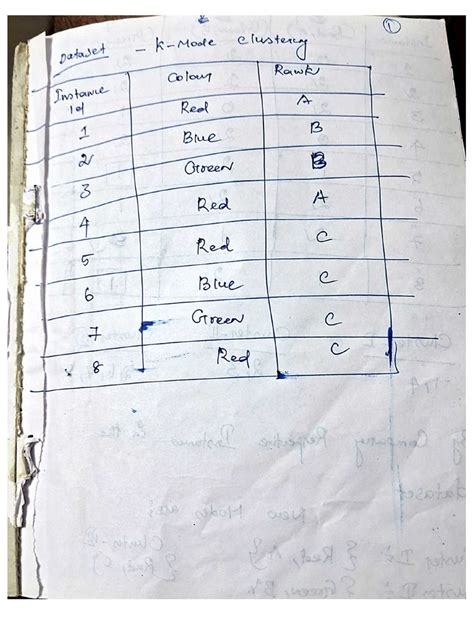 ①
Dataset - K-Mode clustering
Instance Id Colour Rawk
1 Red A
2 Blue B
3 Green B
4 Red A
5 Red C
6 Blue C
7 Green C
8 Red C